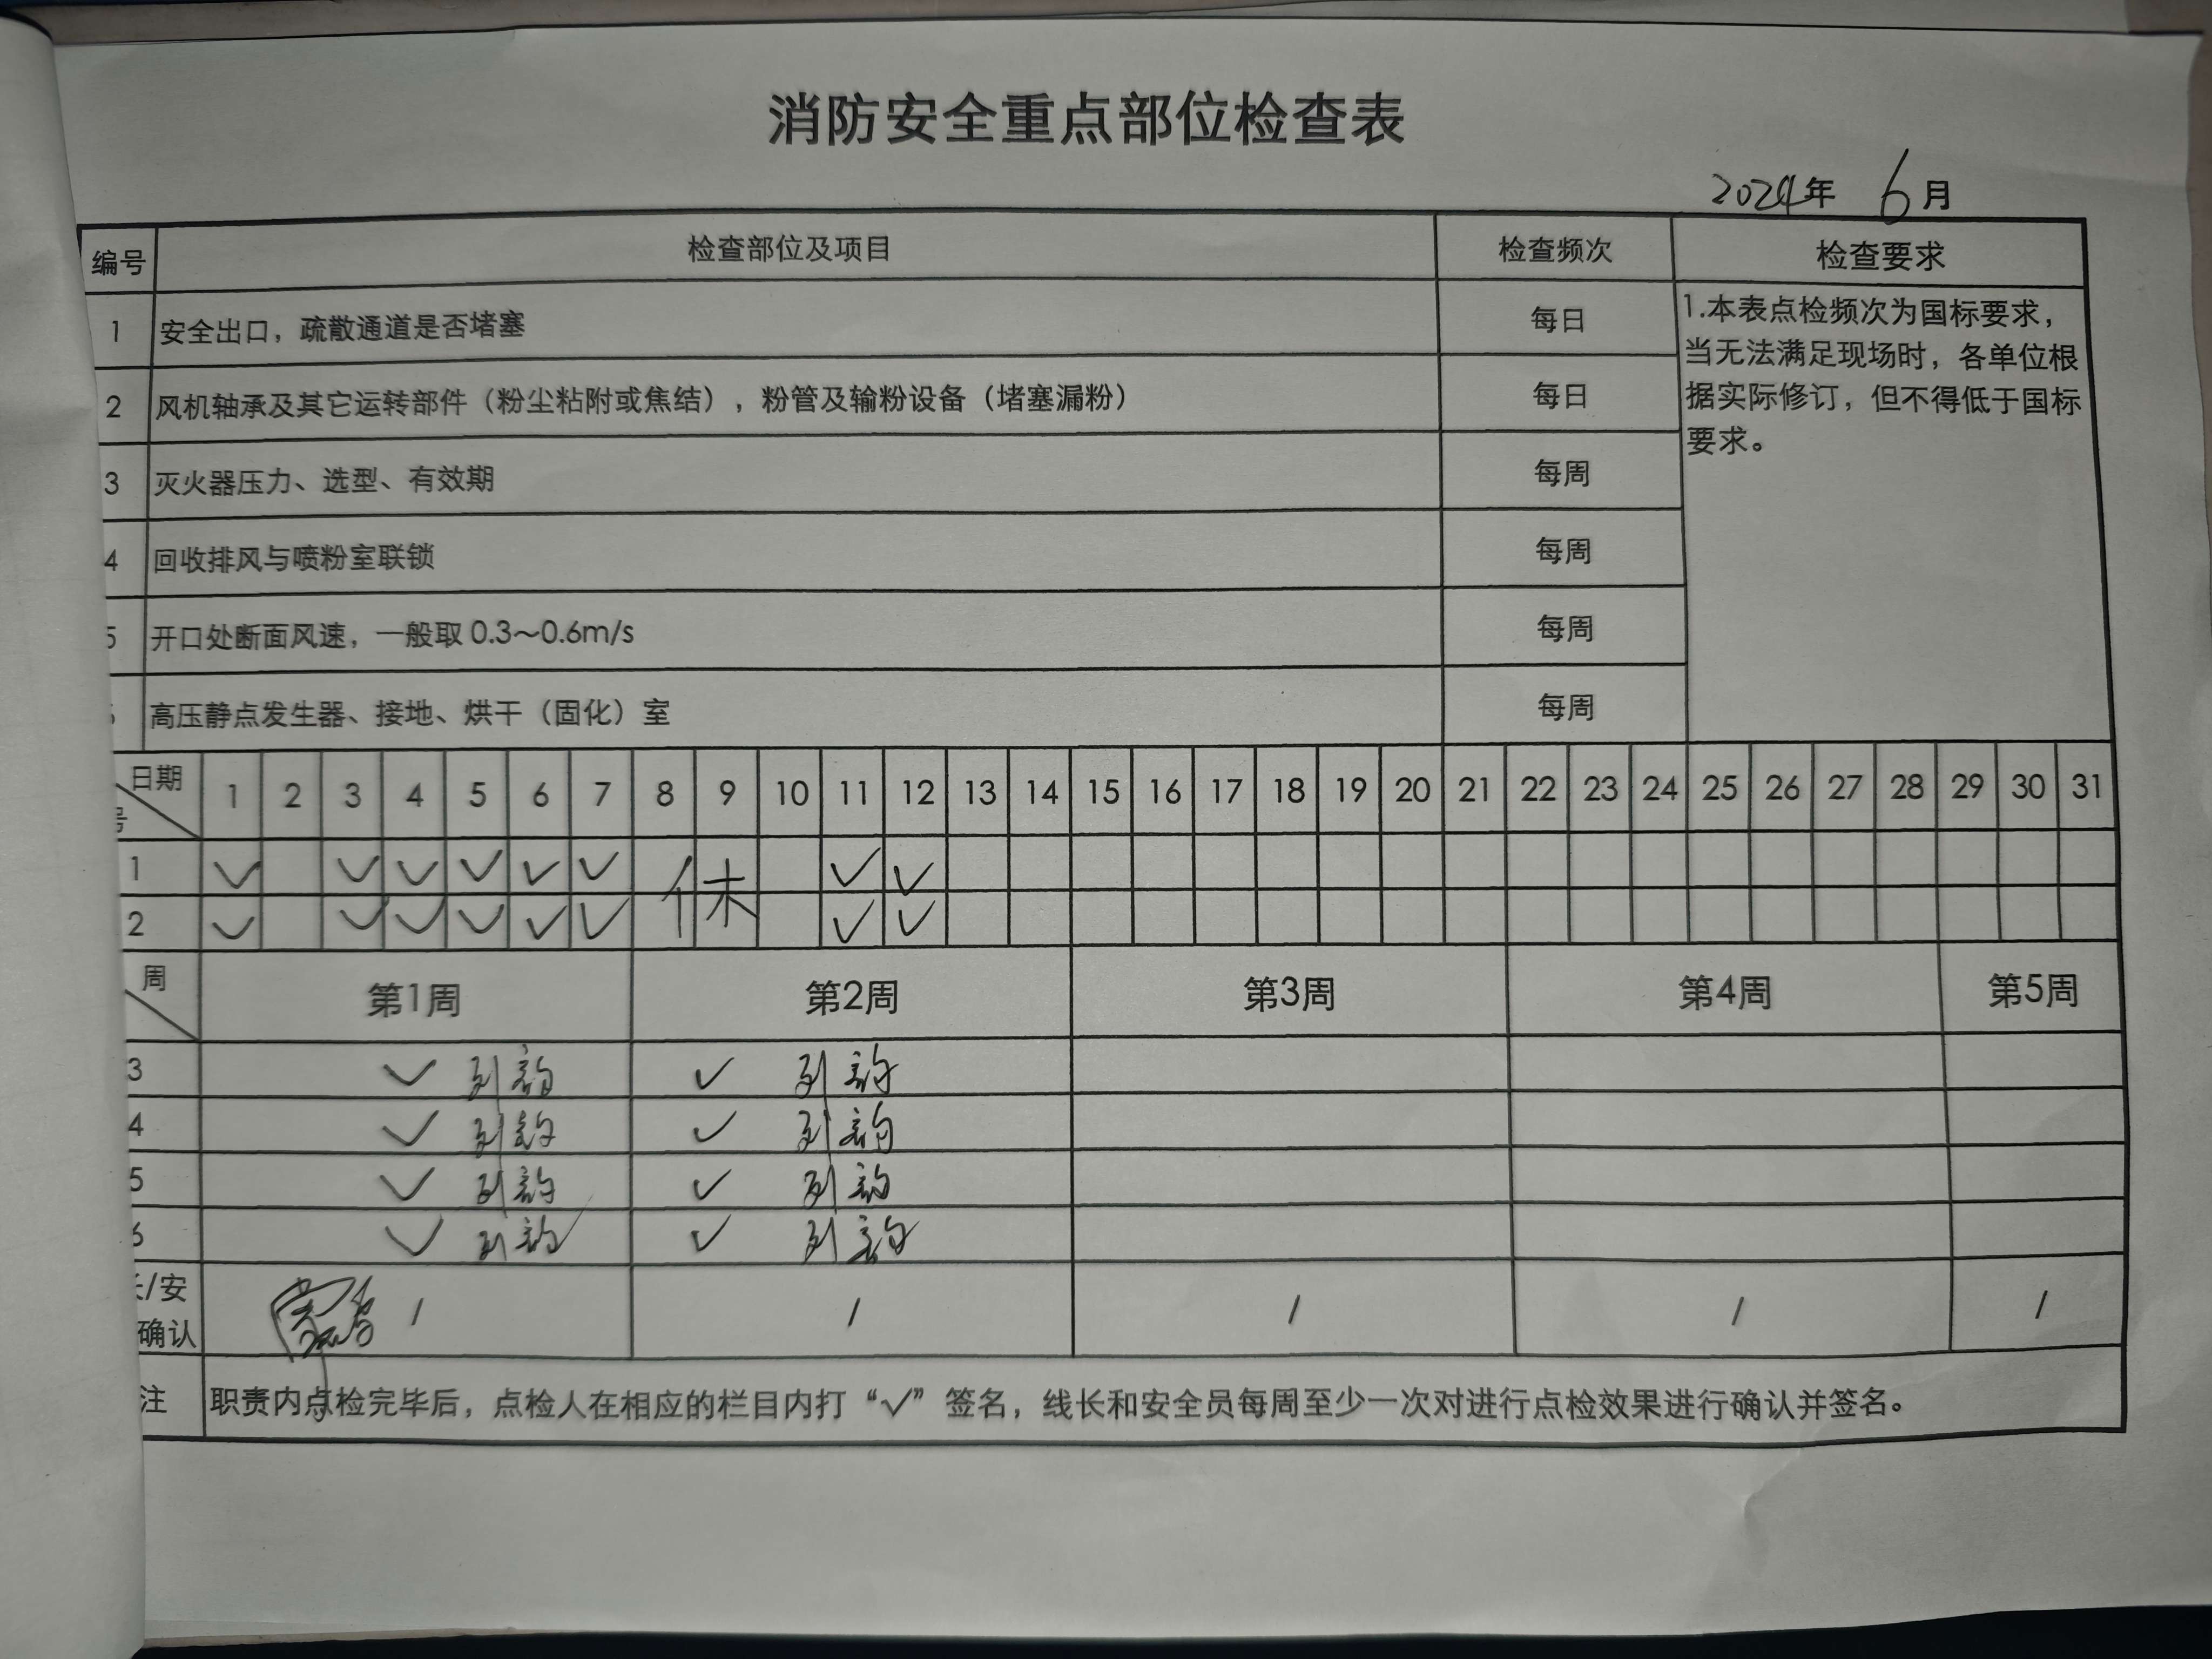 消防安全重点部位检查表
2024年 6月
编号 检查部位及项目 检查频次 检查要求
1 安全出口，疏散通道是否堵塞 每日
2 风机轴承及其它运转部件（粉尘粘附或焦结），粉管及输粉设备（堵塞漏粉） 每日
3 灭火器压力、选型、有效期 每周
4 回收排风与喷粉室联锁 每周
5 开口处断面风速，一般取 0.3～0.6m/s 每周
高压静点发生器、接地、烘干（固化）室 每周
1.本表点检频次为国标要求，
当无法满足现场时，各单位根
据实际修订，但不得低于国标
要求。
日期 1 2 3 4 5 6 7 8 9 10 11 12 13 14 15 16 17 18 19 20 21 22 23 24 25 26 27 28 29 30 31
号
1 √ √ √ √ √ √ 休 √ √
2 √ √ √ √ √ √ √ √
周 第1周 第2周 第3周 第4周 第5周
3 √ √
4 √ √
5 √ √
6 √ √
长/安 / / / / /
确认
注 职责内点检完毕后，点检人在相应的栏目内打“√”签名，线长和安全员每周至少一次对进行点检效果进行确认并签名。